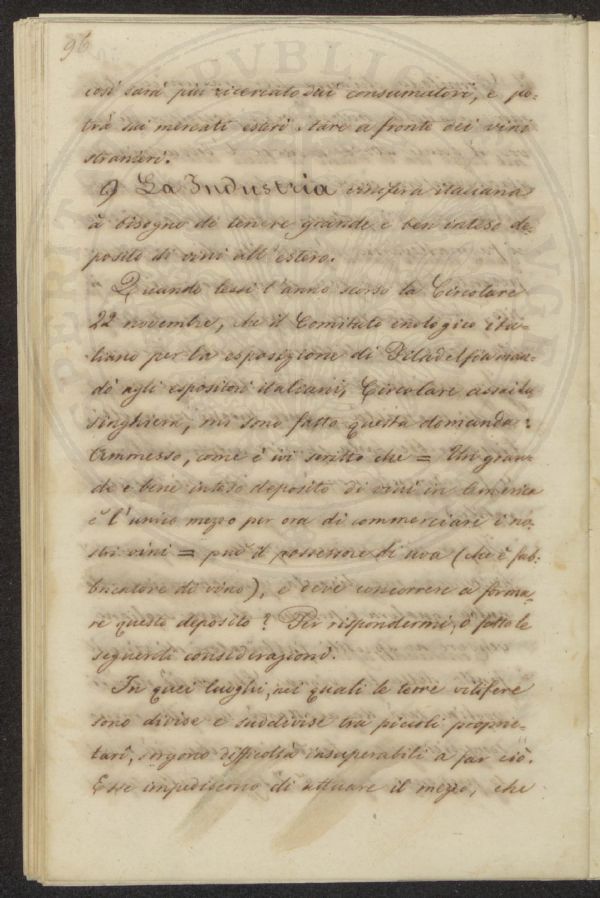 96
così sarà più ricercato dai consumatori, e po=
trà sui mercati esteri stare a fronte dei vini
stranieri.
9 La Industria vinifera italiana
à bisogno di tenere grande e ben inteso de=
posito di vini all'estero.
" Quando lessi l'anno scorso la Circolare
22 novembre, che il Comitato enologico ita=
liano per la esposizione di Filadelfia man=
dò agli espositori italiani, Circolare assai lu
singhiera, mi sono fatto questa domanda:
Ammesso, come è ivi scritto che = Un gran=
de e bene inteso deposito di vini in America
è l'unico mezzo per ora di commerciare i no=
stri vini = può il possessore di uva (che è fab=
bricatore di vino), e deve concorrere a forma=
re questo deposito? Per rispondermi, ò fatto le
seguenti considerazioni.
In quei luoghi, nei quali le terre vitifere
sono divise e suddivise tra piccoli proprie=
tarî, sorgono difficoltà insuperabili a far ciò.
Esse impediscono di attuare il mezzo, che